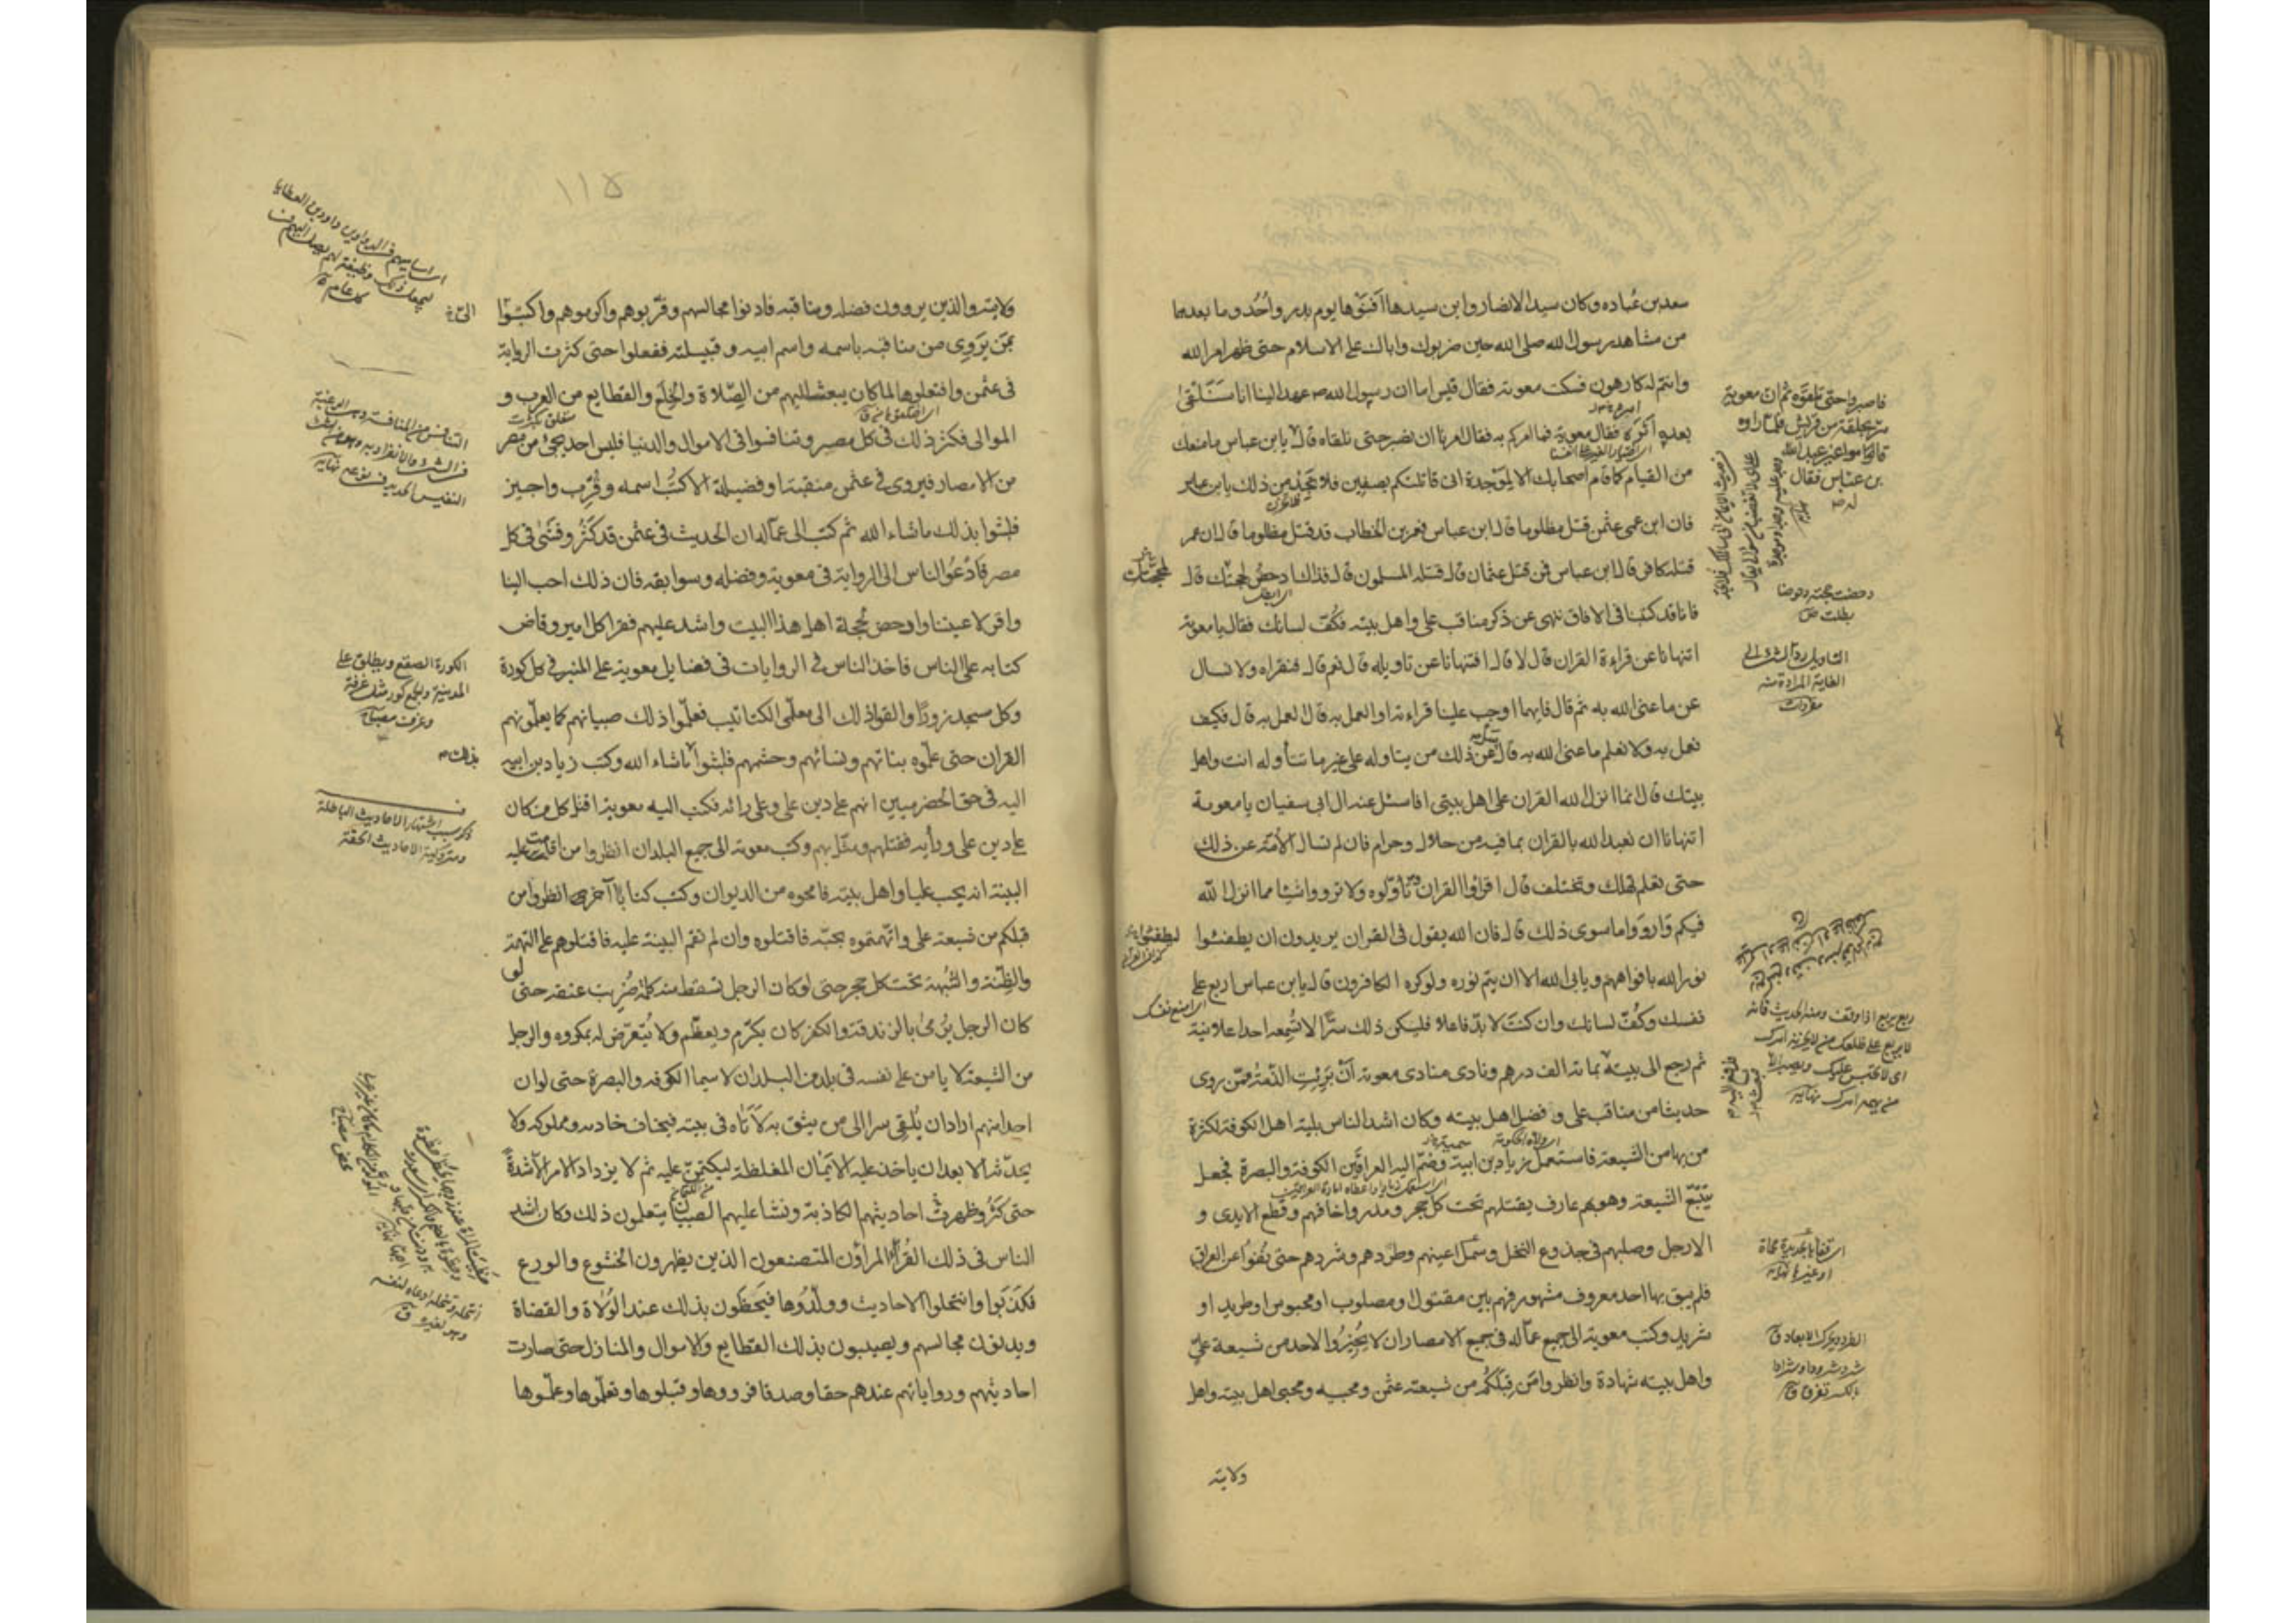 سعد بن عُباده وكان سيد الانصار وابن سيدها أفنَوها يوم بدر واُحُد وما بعدهما
من مشاهد رسول الله صلى الله حين ضربوك واباك على الاسلام حتى ظهر امر الله
وانتم له كارهون فسكت معوية فقال قيس اما ان رسول الله ص عهد الينا انا سَنَلقىٰ
بعده أثرة فقال معوية فما امركم به فقال امرنا ان نصبر حتى نلقاه قال يا بن عباس ما منعك
من القيام كما قام اصحابك الا لموجدة انى قاتلتكم بصفين فلا تجد من ذلك يا بن عباس
فان ابن عمى عثمن قتل مظلوما قال ابن عباس فعمر بن الخطاب قد قتل مظلوما قال ان عمر
قتله كافر قال ابن عباس فمن قتل عثمان قال قتله المسلمون قال فذلك ادحض لحجتك قال
فانا قد كتبنا فى الافاق ننهى عن ذكر مناقب على واهل بيته فكُفّ لسانك فقال يا معوية
اتنهانا عن قراءة القران قال لا قال افتنهانا عن تاويله قال نعم قال فنقراه ولا نسال
عن ما عنى الله به ثم قال فايهما اوجب علينا قراءته او العمل به قال العمل به قال فكيف
نعمل به ولا نعلم ما عنى الله به قال عن ذلك من يتاوله على غير ما تتأوله انت واهل
بيتك قال انما انزل الله القران على اهل بيتى افاسئل عنه ال ابى سفيان يا معوية
اتنهانا ان نعبد الله بالقران بما فيه من حلال وحرام فان لم تسال الأمّة عن ذلك
حتى تعلم تهلك وتختلف قال اقرؤا القران وتأوّلوه ولا ترووا شيئا مما انزل الله
فيكم وارووا ما سوى ذلك قال فان الله يقول فى القران يريدون ان يطفئوا
نور الله بافواههم ويابى الله الا ان يتم نوره ولو كره الكافرون قال يا بن عباس اربع على
نفسك وكُفّ لسانك وان كنتَ لا بدّ فاعلا فليكن ذلك سرًّا لا تُسمعه احدا علانية
ثم رجع الى بيته بمائة الف درهم ونادى منادى معوية أنْ بَرِئتِ الذّمةُ ممّن روى
حديثا من مناقب على و فضل اهل بيته وكان اشد الناس بلية اهل الكوفة لكثرة
من بها من الشيعة فاستعمل زياد بن ابيه وضمّ اليه العراقَين الكوفة والبصرة فجعل
يَتَتَبّع الشيعة وهو بهم عارف يقتلهم تحت كل حجر ومدر واخافهم وقطع الايدى و
الارجل وصلبهم فى جذوع النخل وسمل اعينهم وطردهم وشردهم حتى نُفُوا عن العراق
فلم يبق بها احد معروف مشهور فهم بين مقتول او مصلوب او محبوس او طريد او
شريد وكتب معوية الى جميع عمّاله فى جميع الامصار ان لا يُجيزُوا لاحد من شيعة علىّ
واهل بيته شهادة وانظروا مَن قِبَلكُم من شيعة عثمن ومحبيه ومحبى اهل بيته واهل
ولايته
فاصبروا حتى تلقَوه ثم ان معوية
مرّ بحلقة من قريش فلما راوه
قاموا غير عبد الله
بن عباس فقال
دحضت حجته دحوضا
بطلت ص
التاويل ردّ الشئ الى
الغاية المرادة منه
مفردات
ربع يربع اذا وقف ومنه الحديث فانه
لا يربع على ظلعك من لا يحزنه امرك
اى لا يحتبس عليك ويصبر الا
من يهمه امرك نهايه
اى فقأها بحديدة محماة
او غيرها نهايه
الطرد ويحرك الابعاد ق
اى امنع نفسك
١١٥
ولايته والذين يروون فضله ومناقبه فادنوا مجالسهم وقرّبوهم واكرموهم واكتبوا
بمَن يَروِى من مناقبه باسمه واسم ابيه و قبيلته ففعلوا حتى كثرت الرواية
فى عثمن وافتعلوها لما كان يبعث اليهم من الصِّلاة والخِلَع والقطايع من العرب و
الموالى فكثر ذلك فى كل مصر وتنافسوا فى الاموال والدنيا فليس احد يجئ من مصر
من الامصار فيروى فى عثمن منقبة او فضيلة الا كتبَ اسمه وقُرِّب واجيز
فلبثوا بذلك ماشاء الله ثم كتب الى عمّاله ان الحديث فى عثمن قد كَثُر وفشىٰ فى كل
مصر فادعُوا الناس الى الرواية فى معوية وفضله وسوابقه فان ذلك احب الينا
واقر لاعيننا وادحض لحُجة اهل هذا البيت واشد عليهم فقرا كل امير وقاض
كتابه على الناس فاخذ الناس فى الروايات فى فضايل معوية على المنبر فى كل كورة
وكل مسجد زورًا والقوا ذلك الى معلّمى الكتاتيب فعلّموا ذلك صبيانهم كما يعلّمونهم
القران حتى علّموه بناتهم ونسائهم وحشمهم فلبثوا ماشاء الله وكتب زياد بن ابيه
اليه فى حق الحضرميين انهم على دين على وعلى رائه فكتب اليه معوية اقتل كل من كان
على دين على ورأيه فقتلهم ومثّل بهم وكتب معوية الى جميع البلدان انظروا من اقامت عليه
البينة انه يحب عليا واهل بيته فامحوه من الديوان وكتب كتابا آخر انظروا من
قبلكم من شيعة على واتّهمتموه بحبّه فاقتلوه وان لم تقم البينة عليه فاقتلوهم على التهمة
والظِّنة والشُبهة تحت كل حجر حتى لو كان الرجل تسقط منه كلمة ضُرِبت عنقه حتى لو
كان الرجل يُرمىٰ بالزندقة والكفر كان يكرّم ويعظّم ولا يُتعرّض له بمكروه والرجل
من الشيعة لا يامن على نفسه فى بلد من البلدان لا سيما الكوفه والبصرة حتى لو ان
احدا منهم اراد ان يُلقِى سرا الى من يثق به لاَتاه فى بيته فيخاف خادمه ومملوكه ولا
يحدّثه الا بعد ان ياخذ عليه الايمان المغلظة ليكتمنّ عليه ثم لا يزداد الامر الا شدةً
حتى كَثُر وظهرتْ احاديثهم الكاذبة ونشا عليهم الصبيان يتعلمون ذلك وكان اشد
الناس فى ذلك القُرّاء المراؤن المتصنعون الذين يظهرون الخشوع والورع
فكذَبوا وانتحلوا الاحاديث وولّدُوها فيَحظَون بذلك عند الوُلاة والقضاة
ويدنون مجالسهم ويصيبون بذلك القطايع والاموال والمنازل حتى صارت
احاديثهم ورواياتهم عندهم حقا وصدقا فرووها وقبلوها وتعلّموها وعلّموها
الكورة الصقع ويطلق على
المدينة والجمع كور مثل غرفة
وغرف مصباح
بذلك
ذكر سبب اشتهار الاحاديث الباطلة
ومتروكية الاحاديث الحقة